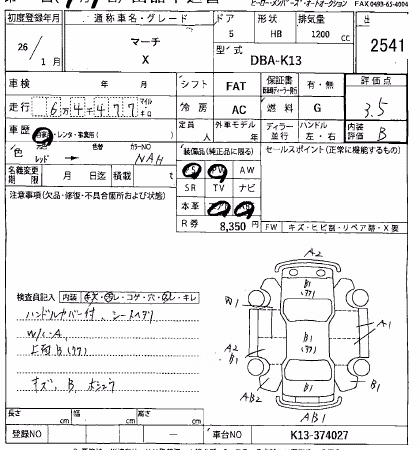 ヒーロー・メンバーズ・オートオークション FAX 0493-65-4004
初度登録年月 通称車名・グレード ドア 形状 排気量 出
26/1月 マーチ X 5 HB 1200 cc
型式 DBA-K13 2541
車検 年 月 シフト FAT 保証書 有・無 評価点
走行 6万4千477 マイル キロ 冷房 AC 燃料 G 3.5
車歴 自家・レンタ・事業用 定員 人 外車モデル 年 ディラー 並行 ハンドル 左・右 内装 評価 B
色 レッド → 色替 カラーNO NAH 装備品(純正品に限る) セールスポイント(正常に機能するもの)
PS PW AW
名義変更期限 月 日迄 積載 t SR TV ナビ
注意事項(欠品・修復・不具合箇所および状態) 本革
R券 8,350 円 FW キズ・ヒビ割・リペア跡・X要
検査員記入 内装 キズ・汚レ・コゲ・穴・ヌレ・キレ
ハンドルカバー付、シートヘタリ
W/C-A
上面B(77)
キズ、B、ホシュウ
A2
B1 (77)
W1
B1 (77)
A1
A2
A2
B1
B1 (77)
B1
AB2
AB1
長さ cm 幅 cm 高さ cm
登録NO — 車台NO K13-374027